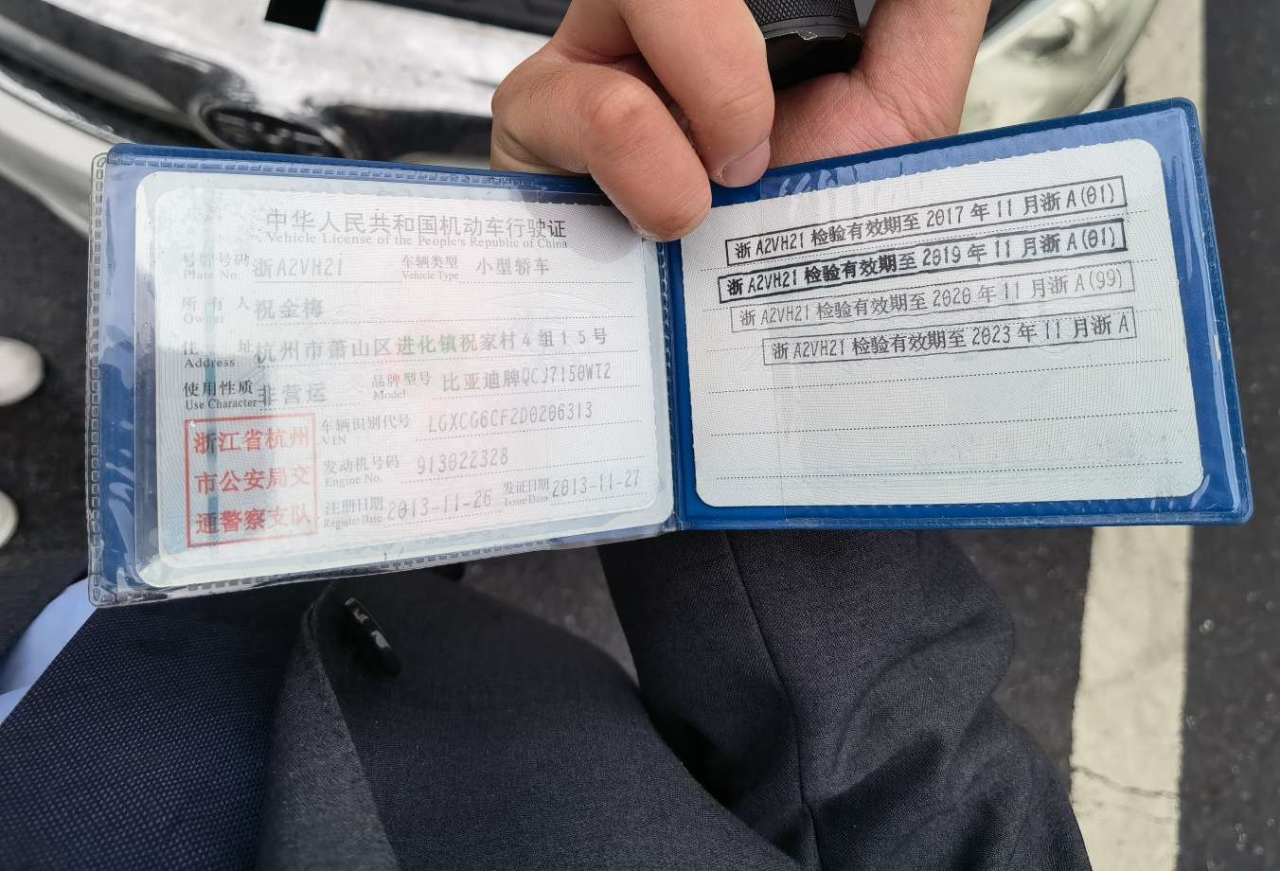 中华人民共和国机动车行驶证
Vehicle License of the People's Republic of China
号牌号码 浙A2VH21 车辆类型 小型轿车
Plate No. Vehicle Type
所有人 祝金梅
Owner
住址 杭州市萧山区进化镇祝家村4组15号
Address
使用性质 非营运 品牌型号 比亚迪牌QCJ7150WT2
Use Character Model
浙江省杭州
市公安局交
通警察支队
车辆识别代号 LGXCG6CF2D0206313
VIN
发动机号码 913022328
Engine No.
注册日期 2013-11-26 发证日期 2013-11-27
Register Date Issue Date
浙A2VH21 检验有效期至 2017 年 11 月浙 A(01)
浙 A2VH21 检验有效期至 2019 年 11 月浙 A(01)
浙 A2VH21 检验有效期至 2020 年 11 月浙 A(99)
浙 A2VH21 检验有效期至 2023 年 11 月浙 A